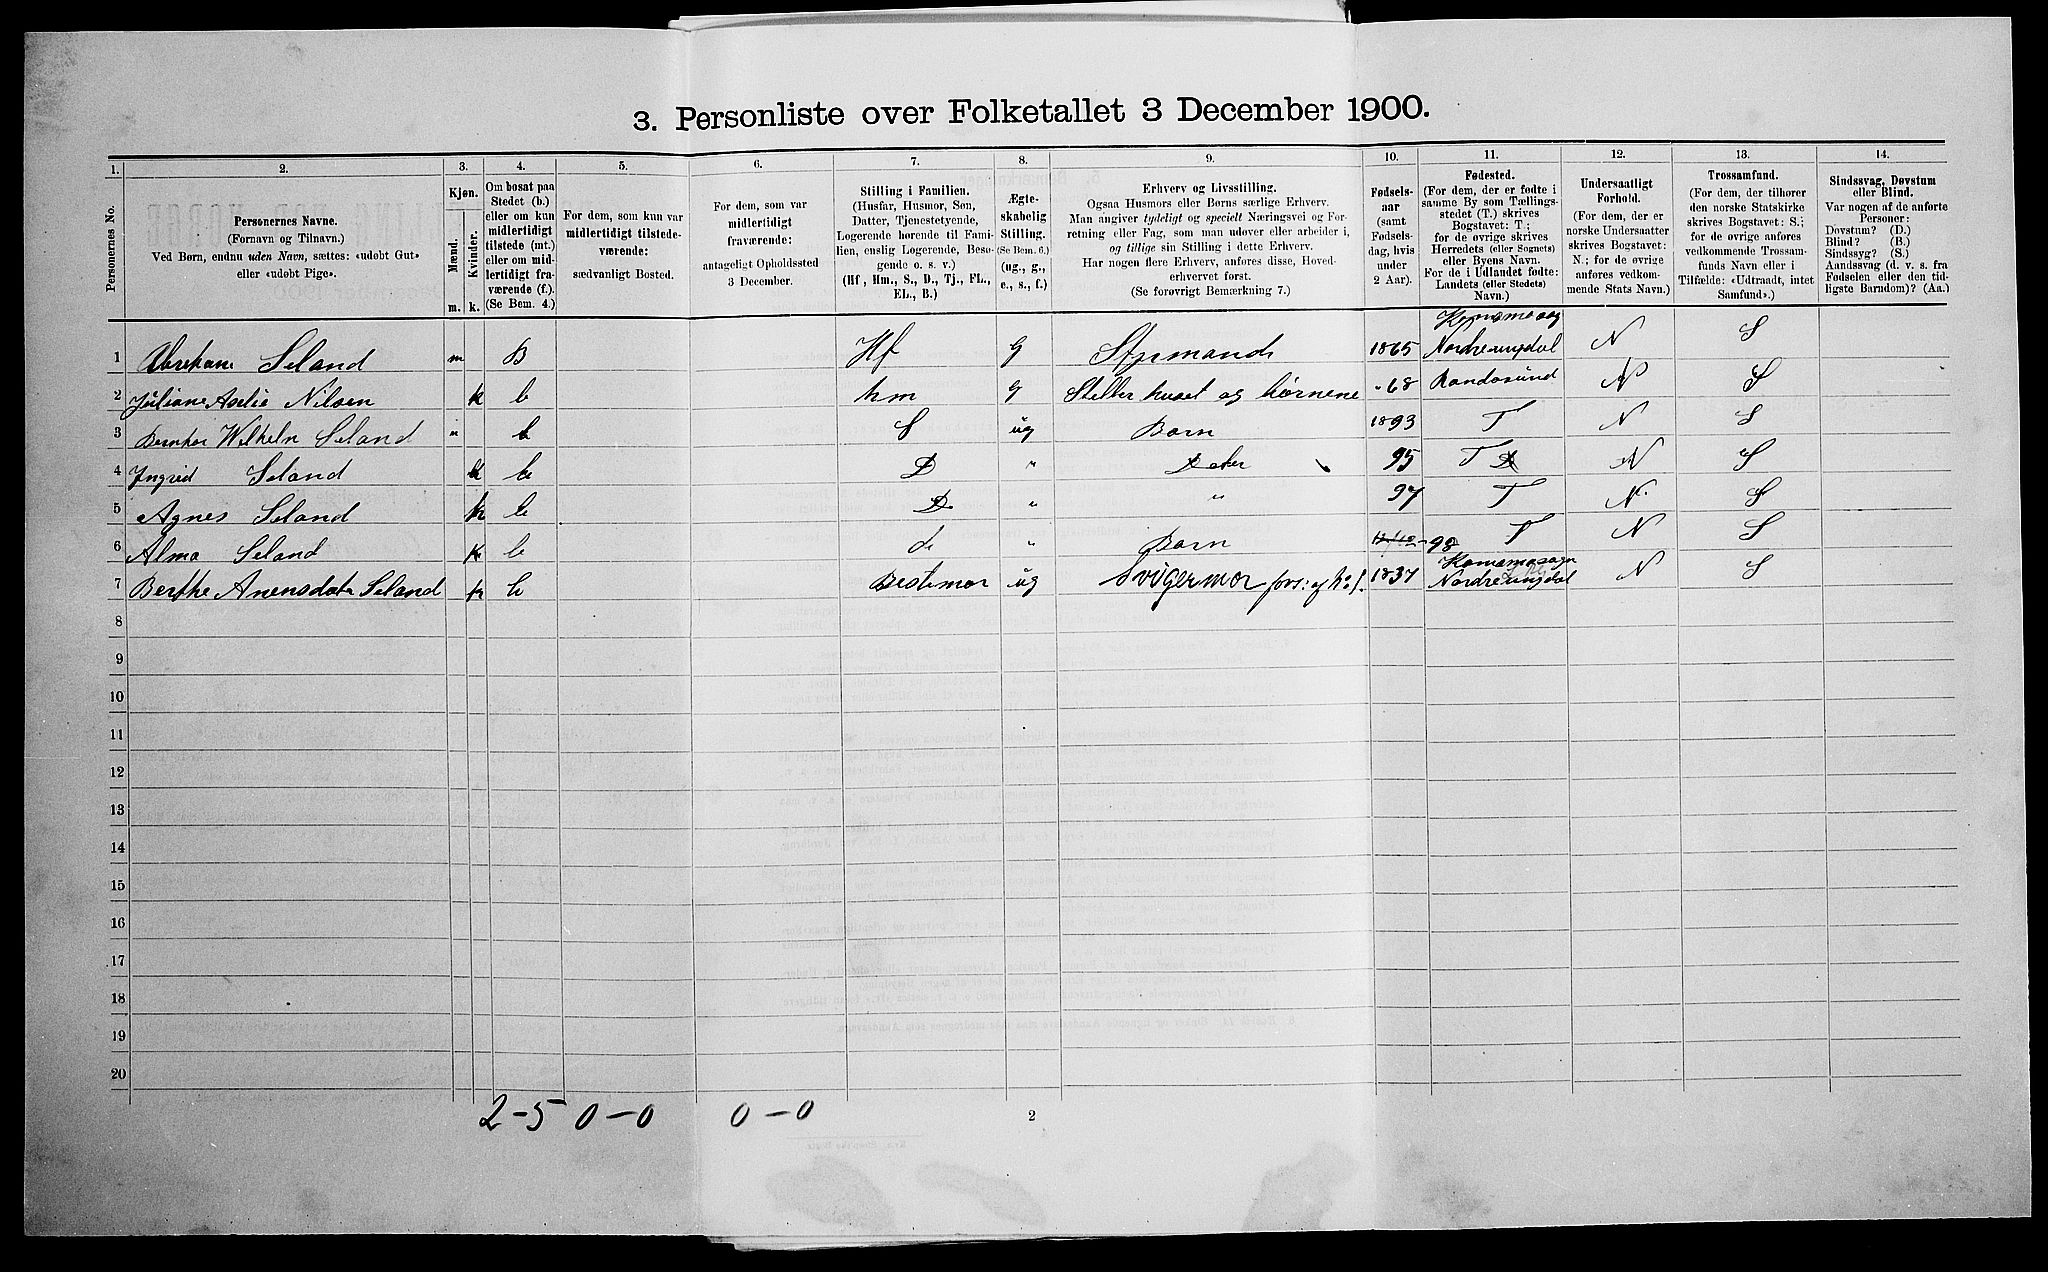 3. Personliste over Folketallet 3 December 1900.
1. 2. 3. 4. 5. 6. 7. 8. 9. 10. 11. 12. 13. 14.
Personernes No.
Personernes Navne.
(Fornavn og Tilnavn.)
Ved Børn, endnu uden Navn, sættes: «udøbt Gut»
eller «udøbt Pige».
Kjøn.
Mænd.
Kvinder.
m. k.
Om bosat paa
Stedet (b.)
eller om kun
midlertidigt
tilstede (mt.)
eller om mid-
lertidigt fra-
værende (f.).
(Se Bem. 4.)
For dem, som kun var
midlertidigt tilstede-
værende:
sædvanligt Bosted.
For dem, som var
midlertidigt
fraværende:
antageligt Opholdssted
3 December.
Stilling i Familien.
(Husfar, Husmor, Søn,
Datter, Tjenestetyende,
Logerende hørende til Fami-
lien, enslig Logerende, Besø-
gende o. s. v.)
(Hf., Hm., S., D., Tj., FL.,
EL., B.)
Ægte-
skabelig
Stilling.
(Se Bem. 6.)
(ug., g.,
e., s., f.)
Erhverv og Livsstilling.
Ogsaa Husmors eller Børns særlige Erhverv.
Man angiver tydeligt og specielt Næringsvei og For-
retning eller Fag, som man udøver eller arbeider i,
og tillige sin Stilling i dette Erhverv.
Har nogen flere Erhverv, anføres disse, Hoved-
erhvervet først.
(Se forøvrigt Bemærkning 7.)
Fødsels-
aar
(samt
Fødsels-
dag, hvis
under
2 Aar).
Fødested.
(For dem, der er fødte i
samme By som Tællings-
stedet (T.) skrives
Bogstavet: T.;
for de øvrige skrives
Herredets (eller Sognets)
eller Byens Navn.
For de i Udlandet fødte:
Landets (eller Stedets)
Navn.)
Undersaatligt
Forhold.
(For dem, der er
norske Undersaatter
skrives Bogstavet:
N.; for de øvrige
anføres vedkom-
mende Stats Navn.)
Trossamfund.
(For dem, der tilhører
den norske Statskirke
skrives Bogstavet: S.;
for de øvrige anføres
vedkommende Trossam-
funds Navn eller i
Tilfælde: «Udtraadt, intet
Samfund».)
Sindssvag, Døvstum
eller Blind.
Var nogen af de anførte
Personer:
Døvstum? (D.)
Blind? (B.)
Sindssyg? (S.)
Aandssvag (d. v. s. fra
Fødselen eller den tid-
ligste Barndom)? (Aa.)
1 Seland m B Hf G Styrmand 1865 N S
2 Juliane Nilsen k b hm G Steller huset og børnene -68 Randøsund N S
3 Seland b S ug Barn 1893 T N S
4 Ingrid Seland k b D " 95 T N S
5 Agnes Seland k b D " " 97 T N S
6 Alma Seland k b d " Barn 98 T N S
7 Berthe Seland k b Bestemor ug Svigermor 1837 N S
8
9
10
11
12
13
14
15
16
17
18
19
20
2-5 0-0 0-0
2